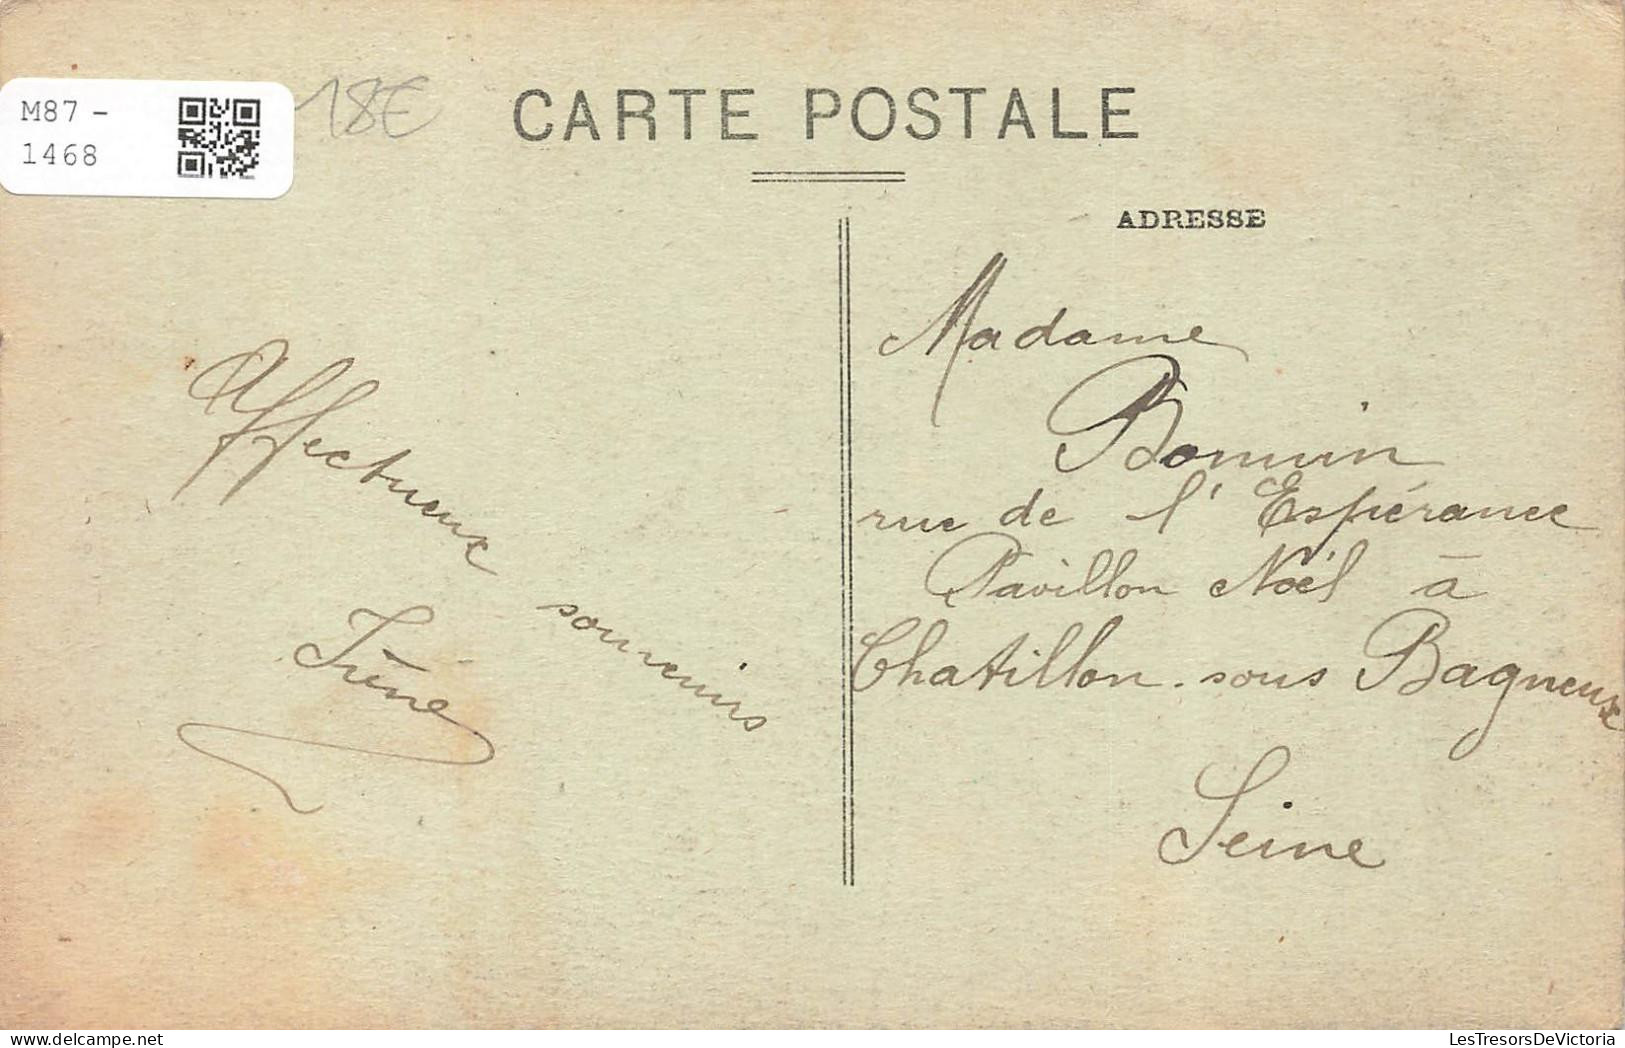 M87 -
1468
18€
CARTE POSTALE
ADRESSE
Affectueux souvenirs
Irène
Madame
Bonnin
rue de l'Espérance
Pavillon Noël à
Chatillon. sous Bagneux
Seine
LesTresorsDeVictoria